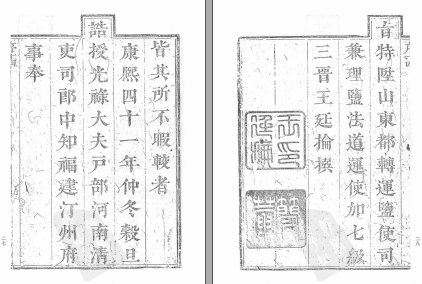 皆其所不暇較者
康熙四十一年仲冬穀旦
誥授光祿大夫戸部河南清
吏司郎中知福建汀州府
事奉
旨特陞山東都轉運鹽使司
兼理鹽法道運使加七級
三晉王廷掄撰
王廷掄印
簡菴